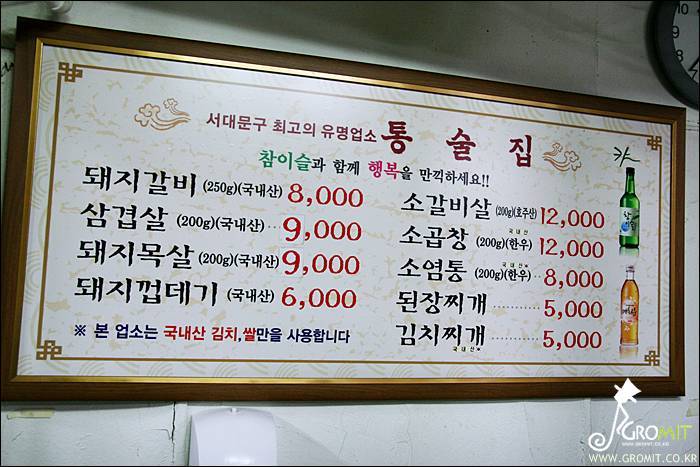 서대문구 최고의 유명업소 통 술 집
참이슬과 함께 행복을 만끽하세요!!
돼지갈비 (250g)(국내산) 8,000
삼겹살 (200g)(국내산)·· 9,000
돼지목살 (200g)(국내산) 9,000
돼지껍데기 (국내산) 6,000
※ 본 업소는 국내산 김치,쌀만을 사용합니다
소갈비살 (200g)(호주산) 12,000
국내산
소곱창 (200g)(한우) 12,000
국내산*
소염통 (200g)(한우)·· 8,000
된장찌개 ············ 5,000
김치찌개 ············ 5,000
국내산*
캬~
10
9
8
GROMIT
WWW.GROMIT.CO.KR
WWW.GROMIT.CO.KR